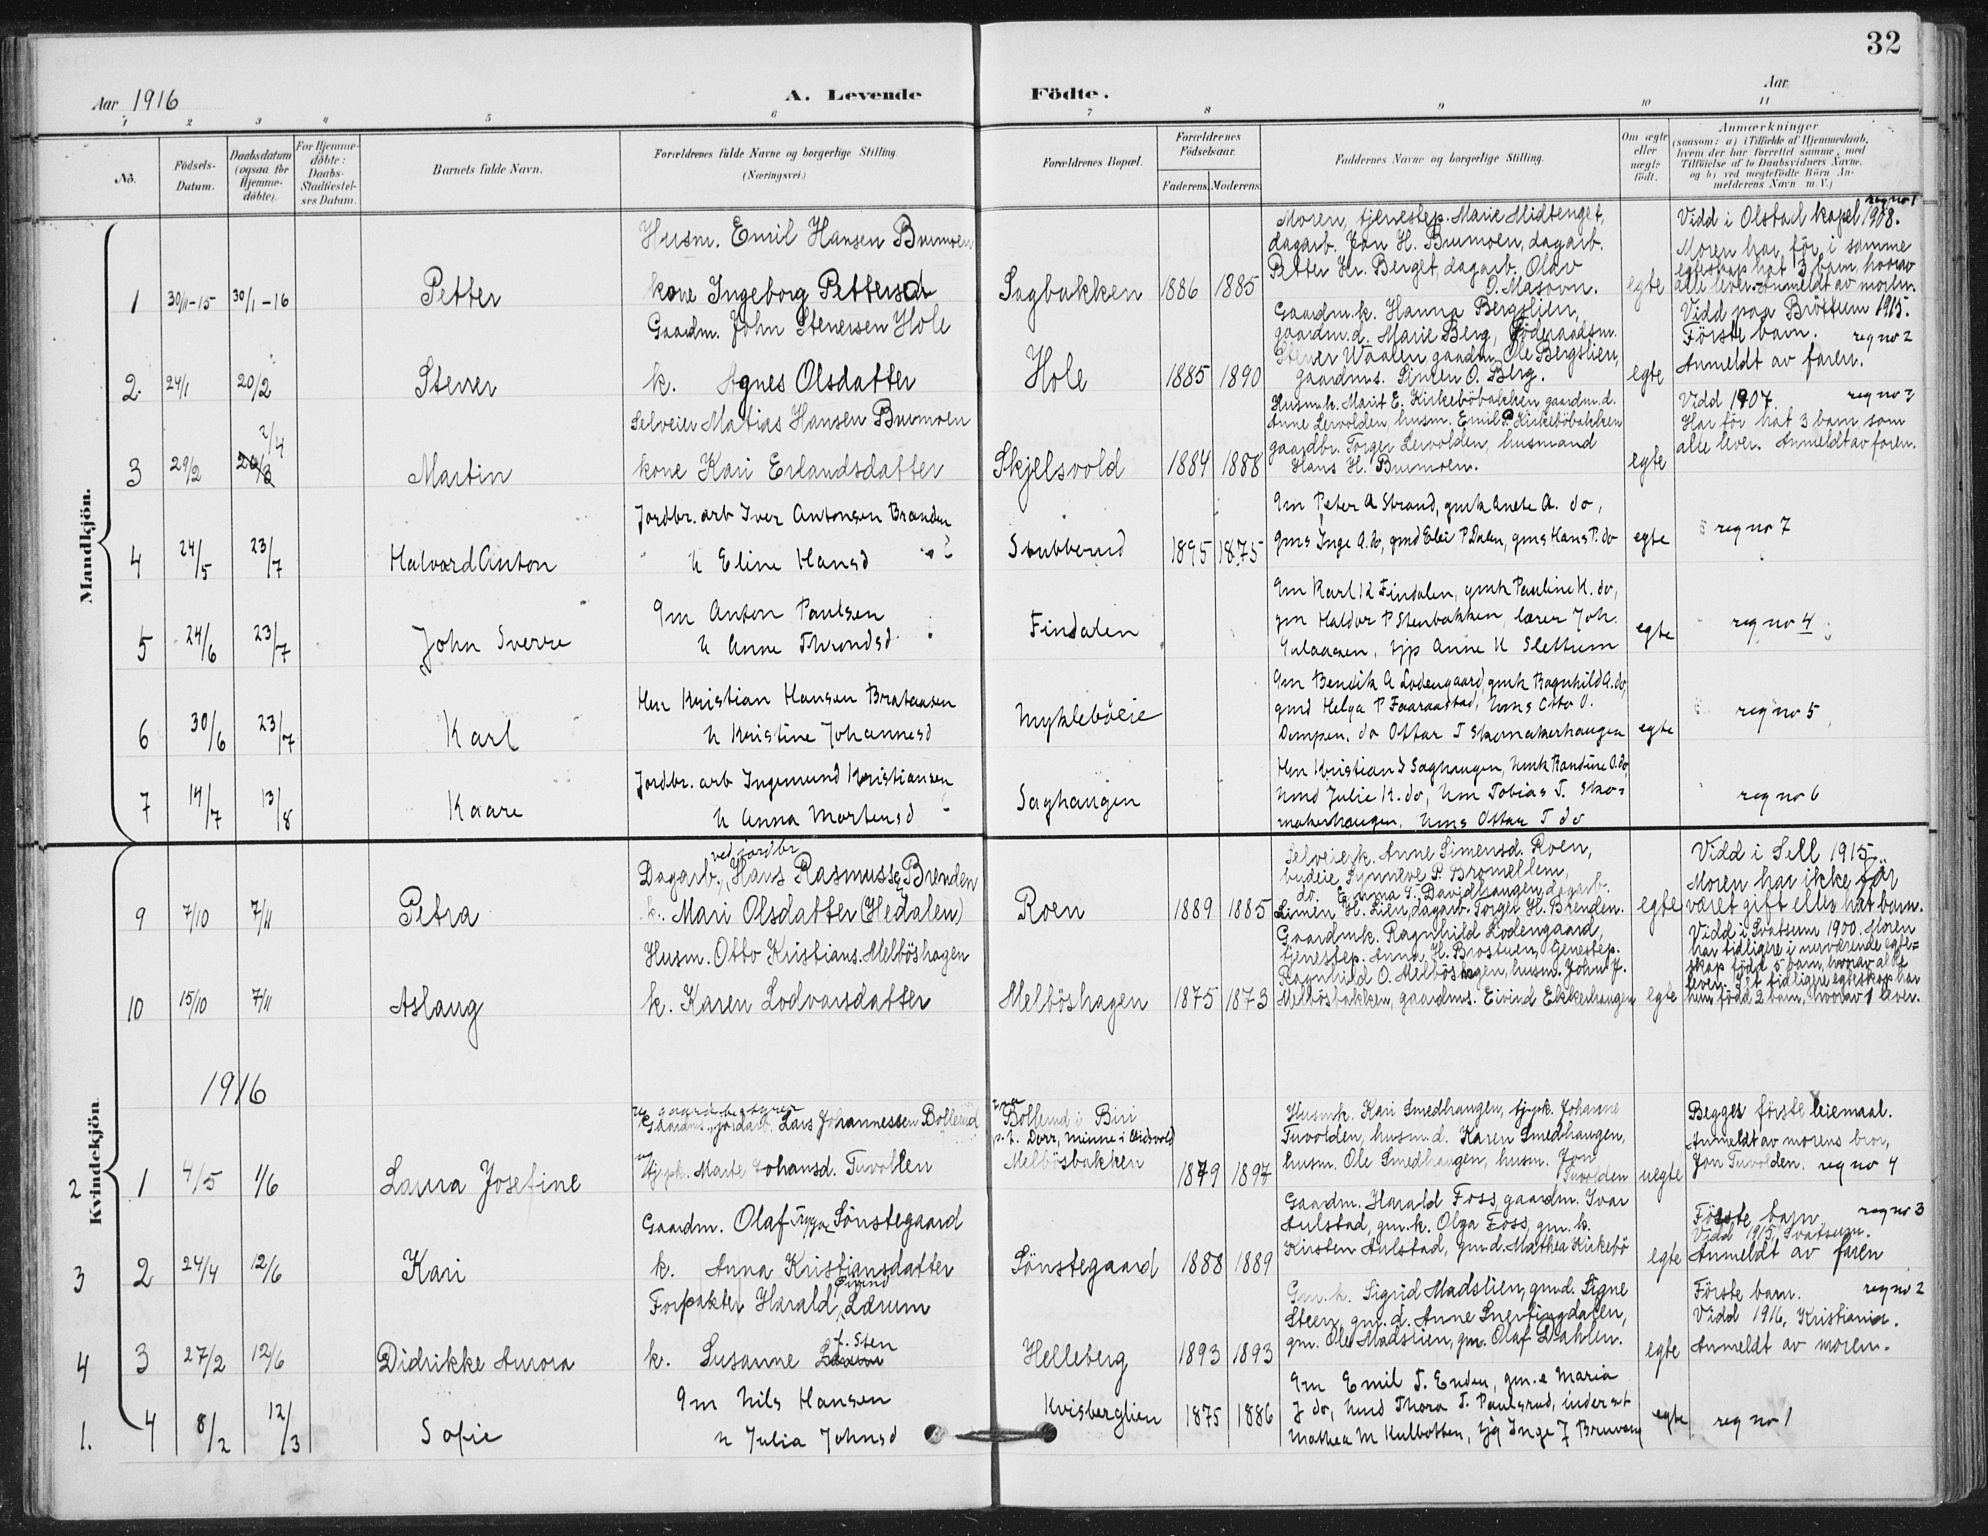 32
Aar 1916
A. Levende Födte.
Aar
1 2 3 4 5 6 7 8 9 10 11
No.
Födsels-Datum.
Daabsdatum (ogsaa for Hjemme-döbte).
For Hjemme-döbte: Daabs-Stadfæstel-ses Datum.
Barnets fulde Navn.
Forældrenes fulde Navne og borgerlige Stilling.
(Næringsvei.)
Forældrenes Bopæl.
Forældrenes Födselsaar.
Faderens. Moderens.
Faddernes Navne og borgerlige Stilling.
Om ægte eller uægte födt.
Anmærkninger
(saasom: a) i Tilfælde af Hjemmedaab, hvem der har forrettet samme, med Tilföielse af to Daabsvidners Navne. og b) ved uægtefödte Börn An-melderens Navn m. V.)
Mandkjön.
1 30/11-15 30/1-16 Petter
Husm. Emil Hansen Brumoen
kone Ingeborg Pettersd
Sagbakken 1886 1885
Moren, tjenestep. Marie Midtenget,
dagarb. Jon H. Brumoen, dagarb.
Petter Kr. Berget, dagarb. Olav
O. Masovn.
egte
reg no 1
Vidd i Olstad kapel 1908.
Moren har før i samme
egteskap hat 3 barn, hvorav
alle lever. Anmeldt av moren.
2. 24/1 20/2 Stener
Gaardm. John Stenersen Hole
k. Agnes Olsdatter
Hole 1885 1890
Gaardm.k. Hanna Bergslien,
gaardm.d. Marie Berg, Föderaadsm.
Stener Waalen gaardm. Ole Bergslien,
gaardms. Simen O. Berg.
egte
Vidd paa Bröttum 1915.
Förste barn. reg no 2
Anmeldt av faren.
3 29/2 2/4 20/3 Martin
Selveier Matias Hansen Brumoen
kone Kari Erlandsdatter
Skjelsvold 1884 1888
Husm.k. Marit E. Kirkeböbakken gaardm.d.
Anne Lervolden, husm. Emil P. Kirkeböbakken
gaardbr. Torger Lervolden, husmand
Hans H. Brumoen.
egte
Vidd 1907. reg no 3
Har för hat 3 barn som
alle lever. Anmeldt av faren.
4 24/5 23/7 Halvard Anton
Jordbr. arb Iver Antonsen Branden
" k Eline Hansd
Stubberud 1895 1875
Gm Peter A Strand, gmk Anete A. do,
gms Inge A. do, gmd Eli P Dalen, gms Hans P. do
egte reg no 7
5 24/6 23/7 John Sverre
Gm Anton Paulsen
k Anne Throndsd
Findalen
Gm Karl K Findalen, gmk Pauline K. do,
gm Haldor P Stenbakken, lærer Joh.
tjp Anne K Slettum
egte reg no 4
6 30/6 23/7 Karl
Hm Kristian Hansen Brataasen
k Kristine Johannesd
Mykleböeie
Gm Bendik A Lodengaard, gmk Ragnhild A. do,
gmd Helga P Faaraastad, hms Otto O.
Dempen, do Ottar T Skomakerhaugen
egte reg no 5
7 14/7 13/8 Kaare
Jordbr. arb Ingemund Kristiansen
k Anna Mortensd
Saghaugen
Hm Kristian I Saghaugen, hmk Randine O. do,
hmd Julie K. do, hm Tobias T. Sko=
makerhaugen, hms Ottar T do
reg no 6
Kvindekjön.
9 7/10 7/11 Petra
ved jordbr
Dagarb. Hans Rasmussen Brenden
k. Mari Olsdatter (Hedalen)
Roen 1889 1885
Selveierk. Anne Simensd. Roen,
budeie Synneve P. Bromellem,
do Emma T. Davidhaugen, dagarb.
Simen H. Lien, dagarb. Torger H. Brenden.
egte
Vidd i Sell 1915
Moren har ikke för
været gift eller hat barn.
10 15/10 7/11 Aslaug
Husm. Otto Kristians. Melböshagen
k. Karen Lodvarsdatter
Melböshagen 1875 1873
Gaardmk. Ragnhild Lodengaard,
tjenestep. Anna H. Brostuen, tjenestep.
Ragnhild O. Melböshagen, husm. John J.
Melbösbakken, gaardms. Eivind Ekkerhaugen
egte
Vidd i Svatsum 1900. Moren
har tidligere i nuværende egte=
skap född 5 barn, hvorav alle
lever. I et tidligere egteskap har
hun född 2 barn, hvorav 1 lever.
1916
2 1 4/5 1/6 Laura Josefine
gaardbestyrer
Gaardms., jordarb. Lars Johannessen Bollerud
Tjpk. Marte Johansd. Tuvollen
Bollerud i Biri
p.t. Dorr, Minne i Eidsvold
Melbösbakken
1879 1897
Husmk. Kari Smedhaugen, tjpk. Johanne
Tuvolden, husm.d. Karen Smedhaugen,
husm. Ole Smedhaugen, husm. Jon
Tuvolden
uegte
Begges förste leiemaal.
Anmeldt av morens bror,
Jon Tuvolden. reg no 4
3 2 24/4 12/6 Kari
Gaardm. Olaf Trygve Sönstegaard
k. Anna Kristiansdatter
Sönstegaard 1888 1889
Gaardm. Harald Foss, gaardm. Ivar
Aulstad, gm.k. Olga Foss, gm.k.
Kirsten Aulstad, gm.d. Mathea Kirkebö
egte
Förste barn. reg no 3
Vidd 1915, Svatsum.
Anmeldt av faren
4 3 27/2 12/6 Didrikke Aurora
Forpakter Harald Eivind Lærum
k. Susanne Lærum f. Sten
Helleberg 1893 1893
Gm.k. Sigrid Madslien, gm.d. Signe
Steen, gm.d. Anne Snertingdalen,
gm. Ole Madslien, gm. Olaf Dahlen.
egte
Förste barn. reg no 2
Vidd 1916, Kristiania.
Anmeldt av moren.
1. 4 8/2 12/3 Sofie
Gm Nils Hansen
k Julia Johnsd
Kvisberglien 1875 1886
Gm Emil T. Enden, gm.e Maria
J do, hmd Thora T. Paulsrud, inderst
Mathea M Kulbotten, tjg Inge J Bruvang
egte reg no 1